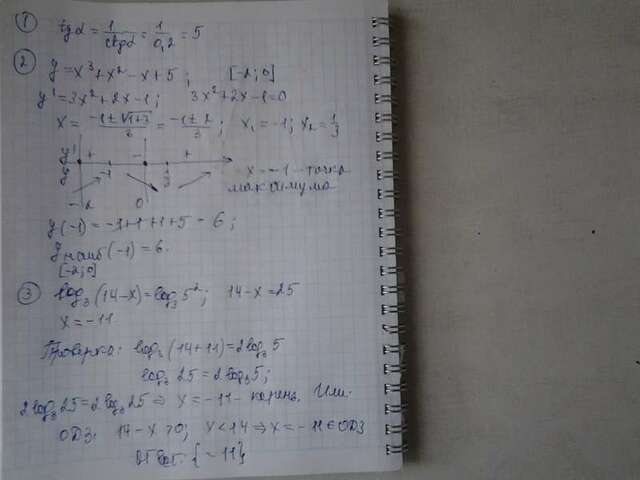 ① tgα = 1/ctgα = 1/0,2 = 5
② y = x³+x²-x+5; [-2;0]
y' = 3x²+2x-1; 3x²+2x-1=0
x = (-1±√(1+3))/3 = (-1±2)/3; x₁ = -1; x₂ = 1/3
y' + - +
y -1 1/3 x = -1 - точка
максимума
-2 0
y(-1) = -1+1+1+5 = 6;
y наиб (-1) = 6.
[-2;0]
③ log₃(14-x) = log₃5²; 14-x = 25
x = -11
Проверка: log₃(14+11) = 2log₃5
log₃25 = 2log₃5;
2log₃25 = 2log₃25 ⇒ x = -11 - корень. Или:
ОДЗ: 14-x>0; x<14 ⇒ x = -11 ∈ ОДЗ
Ответ: {-11}